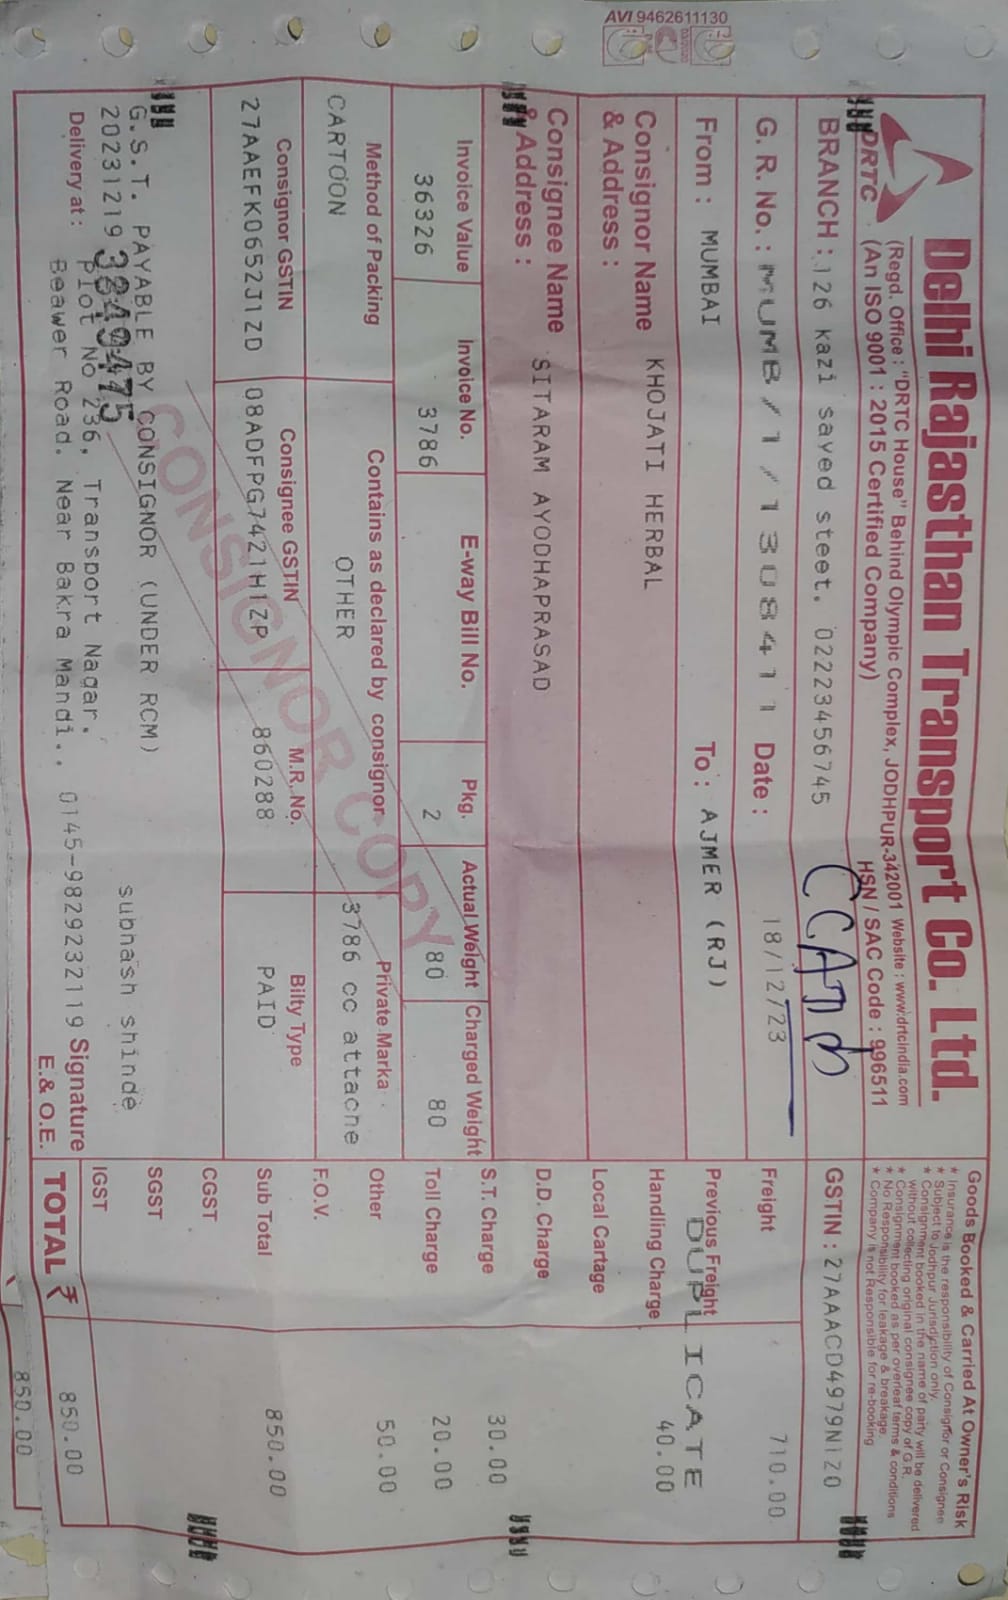 AVI 9462611130
03/2020
DRTC
Delhi Rajasthan Transport Co. Ltd.
(Regd. Office : "DRTC House" Behind Olympic Complex, JODHPUR-342001 Website : www.drtcindia.com
(An ISO 9001 : 2015 Certified Company) HSN / SAC Code : 996511
Goods Booked & Carried At Owner's Risk
* Insurance is the responsibility of Consignor or Consignee
* Subject to Jodhpur Jurisdiction only.
* Consignment booked in the name of party will be delivered
without collecting original consignee copy of G.R.
* Consignment booked as per overleaf terms & conditions
* No Responsibility for leakage & breakage.
* Company is not Responsible for re-booking
BRANCH : 126 kazi sayed steet. 02223456745
GSTIN : 27AAACD4979N1Z0
G. R. No. : MUMB/1/1308411 Date : 18/12/23
Freight 710.00
From : MUMBAI To : AJMER (RJ)
Previous Freight
DUPLICATE
Consignor Name KHOJATI HERBAL
& Address :
Handling Charge 40.00
Local Cartage
Consignee Name SITARAM AYODHAPRASAD
& Address :
D.D. Charge
S.T. Charge 30.00
Invoice Value Invoice No. E-way Bill No. Pkg. Actual Weight Charged Weight
36326 3786 2 80 80
Toll Charge 20.00
Method of Packing Contains as declared by consignor Private Marka
CARTOON OTHER 3786 cc attache
Other 50.00
F.O.V.
Consignor GSTIN Consignee GSTIN M.R. No. Bilty Type
27AAEFK0652J1ZD 08ADFPG7421H1ZP 860288 PAID
Sub Total 850.00
CONSIGNOR COPY
CGST
SGST
IGST
G.S.T. PAYABLE BY CONSIGNOR (UNDER RCM)
20231219 subhash shinde
3849475
Delivery at : Plot No 236, Transport Nagar.
Beawer Road. Near Bakra Mandi.. 0145-9829232119 Signature
E. & O.E.
TOTAL ₹ 850.00
850.00